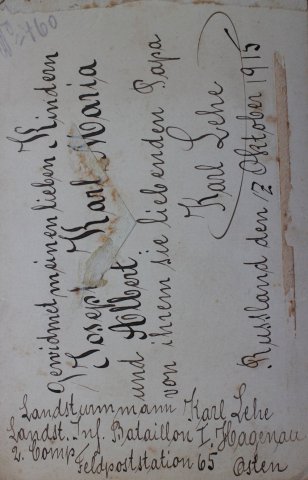 No 160
Gewidmet meinen lieben Kindern
Josef Karl Maria
und Albert
von ihrem sie liebenden Papa
Karl Lehe
Russland den 2 Oktober 1915
Landsturmmann Karl Lehe
Landst. Inf. Bataillon I. Hagenau
2. Comp.
Feldpoststation 65 Osten